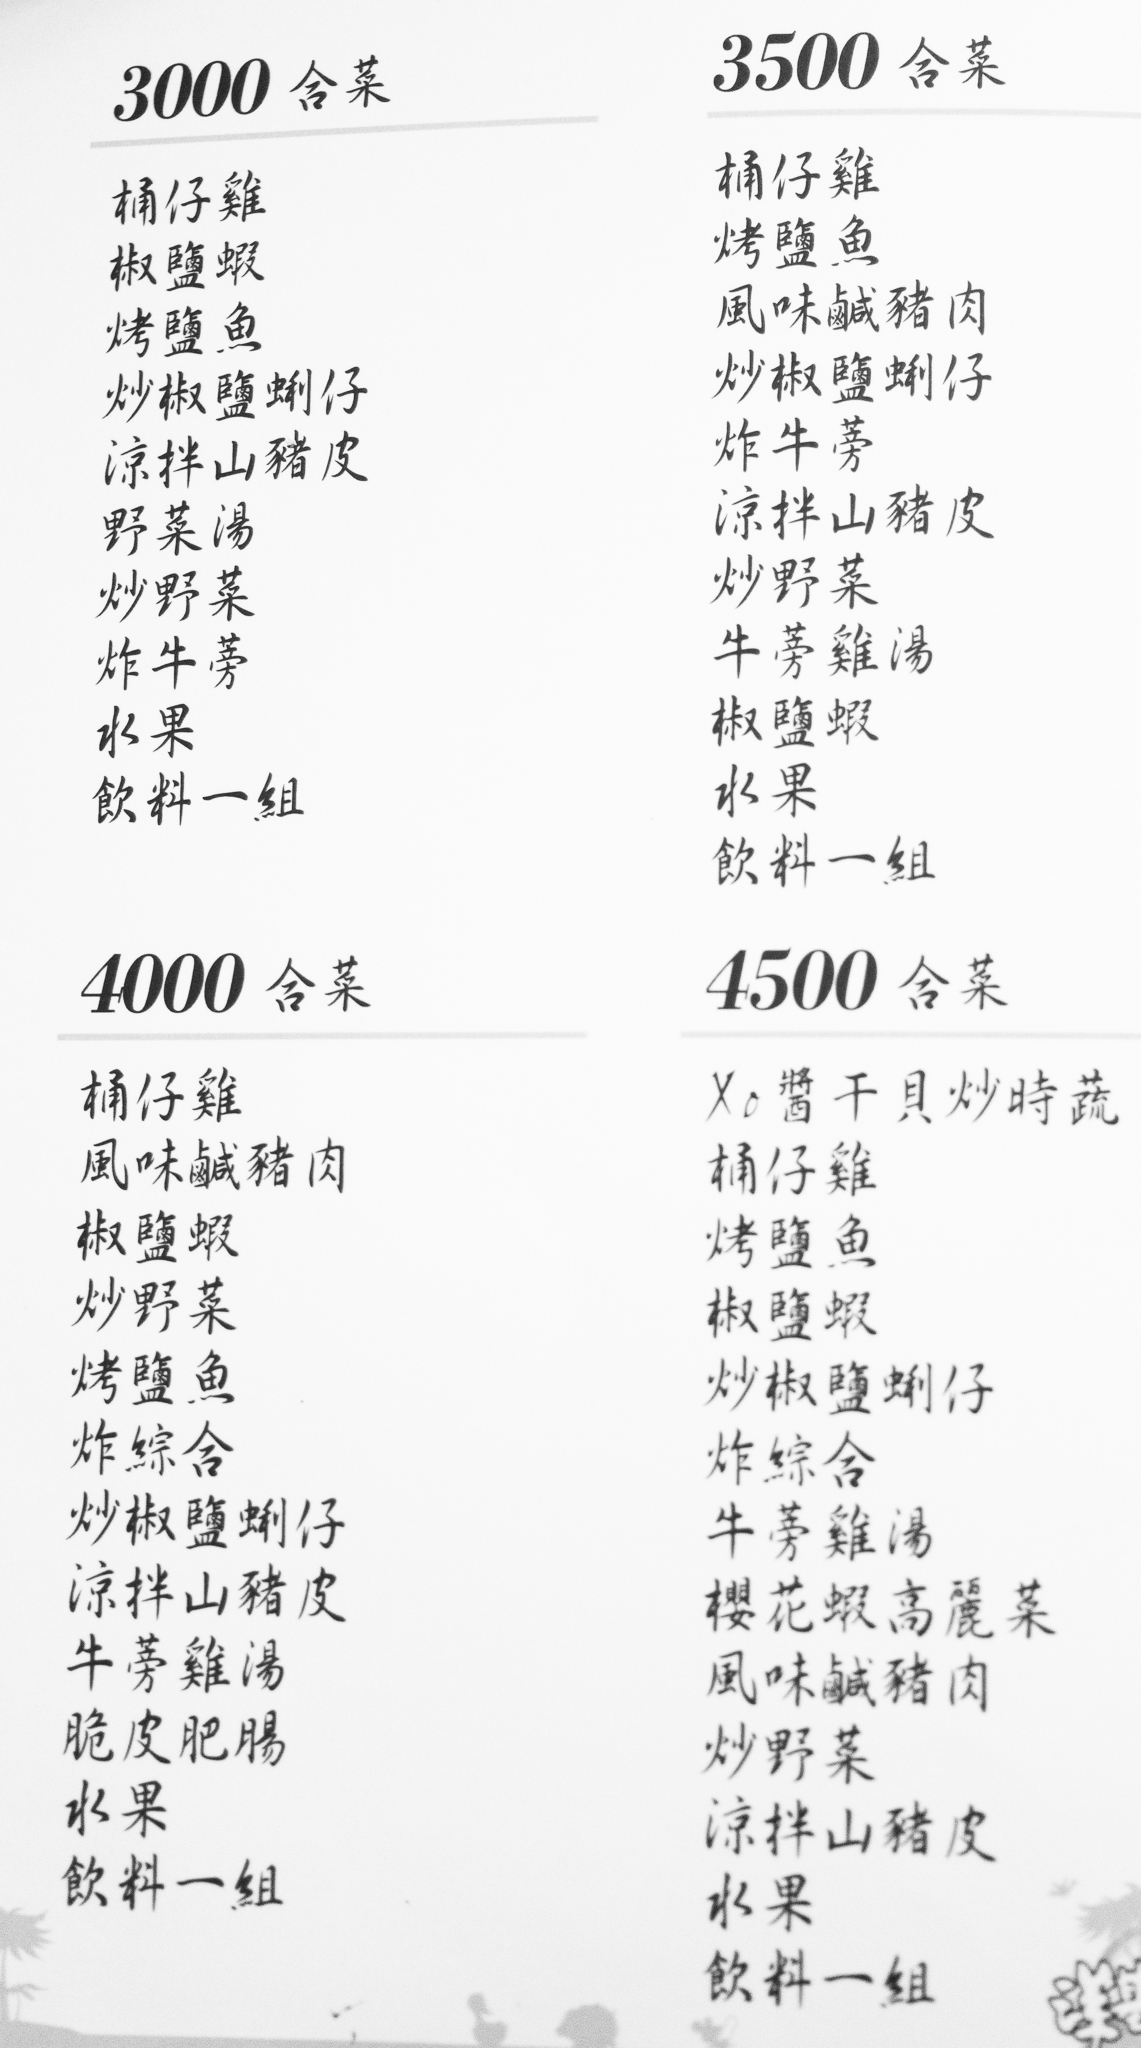 3000 合菜
桶仔雞
椒鹽蝦
烤鹽魚
炒椒鹽蜊仔
涼拌山豬皮
野菜湯
炒野菜
炸牛蒡
水果
飲料一組
3500 合菜
桶仔雞
烤鹽魚
風味鹹豬肉
炒椒鹽蜊仔
炸牛蒡
涼拌山豬皮
炒野菜
牛蒡雞湯
椒鹽蝦
水果
飲料一組
4000 合菜
桶仔雞
風味鹹豬肉
椒鹽蝦
炒野菜
烤鹽魚
炸綜合
炒椒鹽蜊仔
涼拌山豬皮
牛蒡雞湯
脆皮肥腸
水果
飲料一組
4500 合菜
Xo醬干貝炒時蔬
桶仔雞
烤鹽魚
椒鹽蝦
炒椒鹽蜊仔
炸綜合
牛蒡雞湯
櫻花蝦高麗菜
風味鹹豬肉
炒野菜
涼拌山豬皮
水果
飲料一組